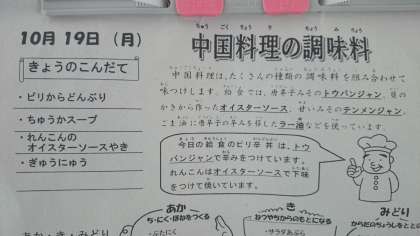 10月19日（月）
きょうのこんだて
・ピリからどんぶり
・ちゅうかスープ
・れんこんの
オイスターソースやき
・ぎゅうにゅう
中国料理の調味料
中国料理は、たくさんの種類の調味料を組み合わせて
味つけします。給食では、唐辛子みそのトウバンジャン、貝の
かきから作ったオイスターソース、甘いみそのテンメンジャン、
ごま油に唐辛子の辛みを移したラー油などを使っています。
今日の給食のピリ辛丼は、トウ
バンジャンで辛みをつけています。
れんこんはオイスターソースで下味
をつけて焼いています。
あか・き・みどり
あか
ち・にく・ほねをつくる
・ぶたにく
き
ねつやちからのもとになる
・サラダあぶら
みどり
からだのちょうしをととの